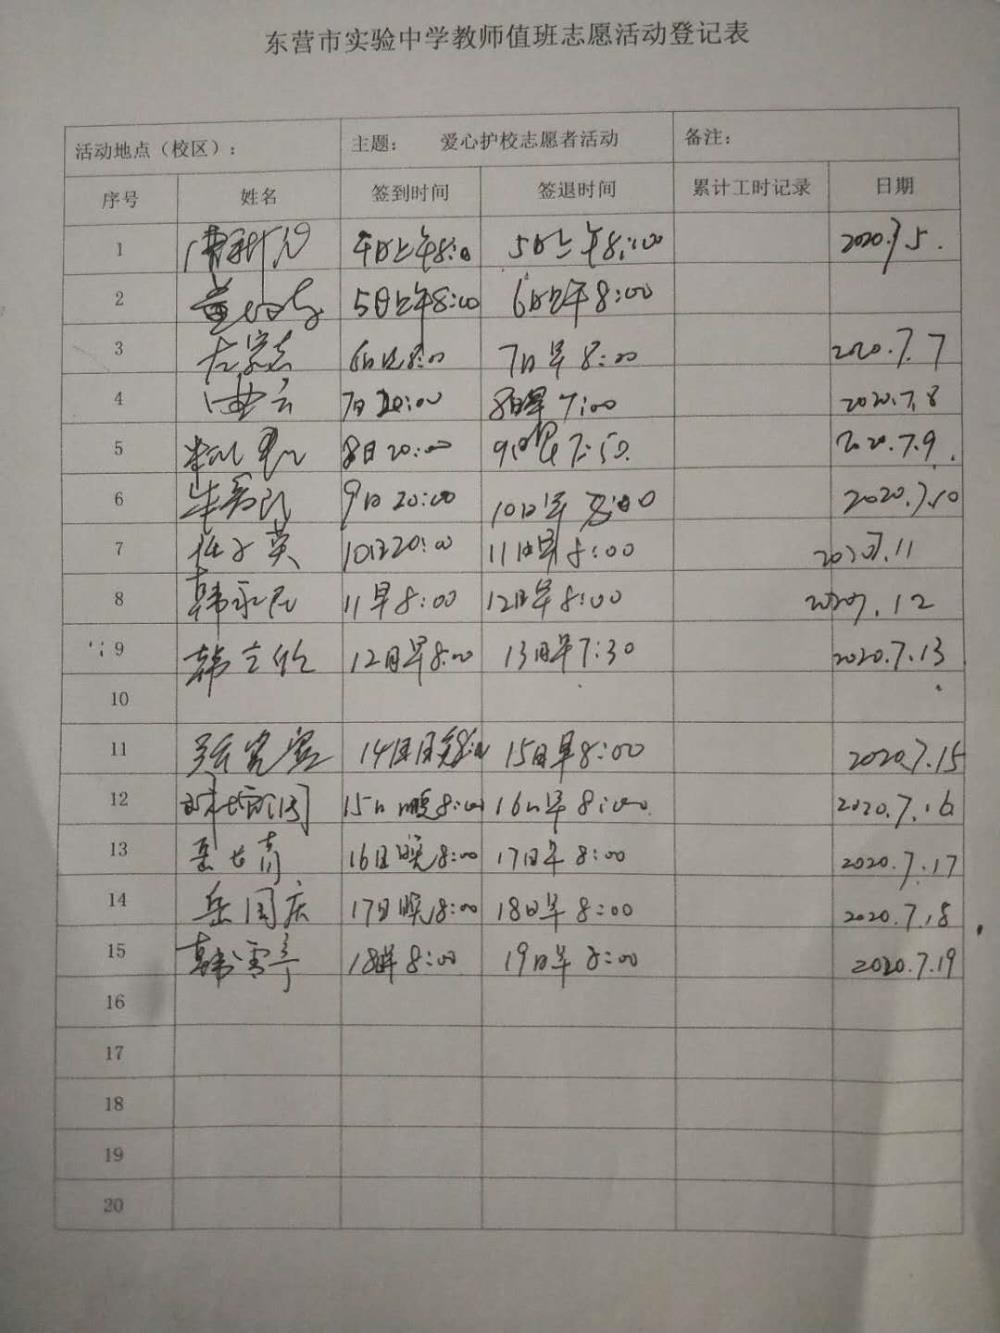 东营市实验中学教师值班志愿活动登记表
活动地点（校区）： 主题： 爱心护校志愿者活动 备注：
序号 姓名 签到时间 签退时间 累计工时记录 日期
1 4日上午8:00 5日上午8:00 2020.7.5.
2 5日上午8:00 6日上午8:00
3 7日早8:00 2020.7.7
4 曲云 7日20:00 8日早7:00 2020.7.8
5 8日20:00 7:50. 2020.7.9.
6 9日20:00 10日早8:00 2020.7.10
7 英 10日20:00 11日早8:00 2020.7.11
8 韩永 11早8:00 12日早8:00 2020.7.12
9 韩立 12日早8:00 13日早7:30 2020.7.13
10
11 14日 15日早8:00 2020.7.15
12 15日晚8:00 16日早8:00. 2020.7.16
13 岳长青 16日晚8:00 17日早8:00 2020.7.17
14 岳国庆 17日晚18:00 18日早8:00 2020.7.18
15 韩雪亭 8:00 19日早8:00 2020.7.19
16
17
18
19
20